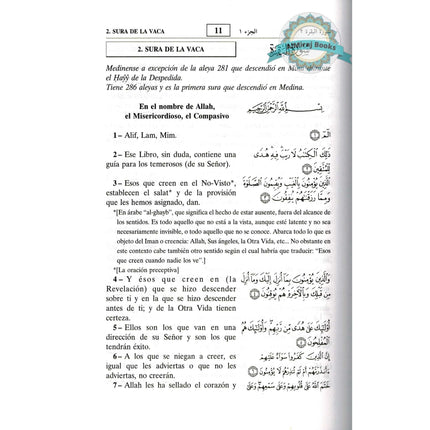 2. SURA DE LA VACA 11 الجزء ١ سورة البقرة ٢
Miraj Books
2. SURA DE LA VACA
Medinense a excepción de la aleya 281 que descendió en Mina durante
el Ḥaŷŷ de la Despedida.
Tiene 286 aleyas y es la primera sura que descendió en Medina.
En el nombre de Allah,
el Misericordioso, el Compasivo
بِسْمِ اللَّهِ الرَّحْمَنِ الرَّحِيمِ
1 – Alif, Lam, Mim.
الٓمٓ ۝١
2 – Ese Libro, sin duda, contiene una
guía para los temerosos (de su Señor).
ذَٰلِكَ ٱلْكِتَٰبُ لَا رَيْبَ فِيهِ هُدًى
لِّلْمُتَّقِينَ ۝٢
3 – Esos que creen en el No-Visto*,
establecen el salat* y de la provisión
que les hemos asignado, dan.
ٱلَّذِينَ يُؤْمِنُونَ بِٱلْغَيْبِ وَيُقِيمُونَ ٱلصَّلَوٰةَ
وَمِمَّا رَزَقْنَٰهُمْ يُنفِقُونَ ۝٣
*[En árabe “al-ghayb”, que significa el hecho de estar ausente, fuera del alcance de
los sentidos. Es todo aquello que no está a la vista, aunque esté latente y no sea
necesariamente invisible, o todo aquello que no se conoce. Abarca todo lo que es
objeto del Iman o creencia: Allah, Sus ángeles, la Otra Vida, etc... No obstante en
este contexto cabe también otro sentido según el cual habría que traducir: “Esos
que creen cuando nadie los ve”.]
*[La oración preceptiva]
4 – Y ésos que creen en (la
Revelación) que se hizo descender
sobre ti y en la que se hizo descender
antes de ti; y de la Otra Vida tienen
certeza.
وَٱلَّذِينَ يُؤْمِنُونَ بِمَآ أُنزِلَ إِلَيْكَ وَمَآ أُنزِلَ
مِن قَبْلِكَ وَبِٱلْءَاخِرَةِ هُمْ يُوقِنُونَ ۝٤
5 – Ellos son los que van en una
dirección de su Señor y son los que
tendrán éxito.
أُو۟لَٰٓئِكَ عَلَىٰ هُدًى مِّن رَّبِّهِمْ وَأُو۟لَٰٓئِكَ هُمُ
ٱلْمُفْلِحُونَ ۝٥
6 – A los que se niegan a creer, es
igual que les adviertas o que no les
adviertas, no creerán.
إِنَّ ٱلَّذِينَ كَفَرُوا۟ سَوَآءٌ عَلَيْهِمْ
ءَأَنذَرْتَهُمْ أَمْ لَمْ تُنذِرْهُمْ لَا يُؤْمِنُونَ ۝٦
7 – Allah les ha sellado el corazón y
خَتَمَ ٱللَّهُ عَلَىٰ قُلُوبِهِمْ وَعَلَىٰ سَمْعِهِمْ وَعَلَىٰٓ